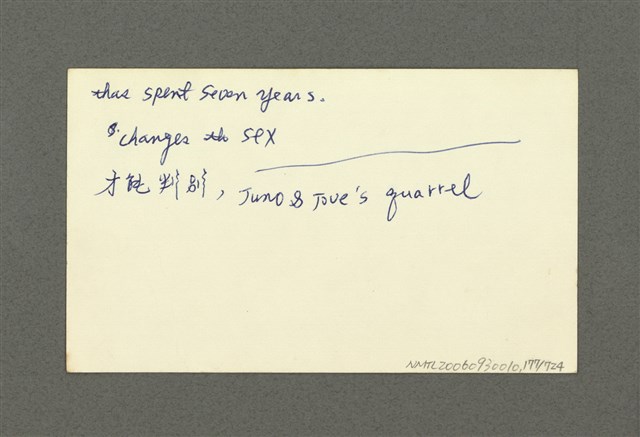 thus spent seven years.
8. changes th sex
才能判別, Juno & Jove's quarrel
NMTL20060930010,177/724